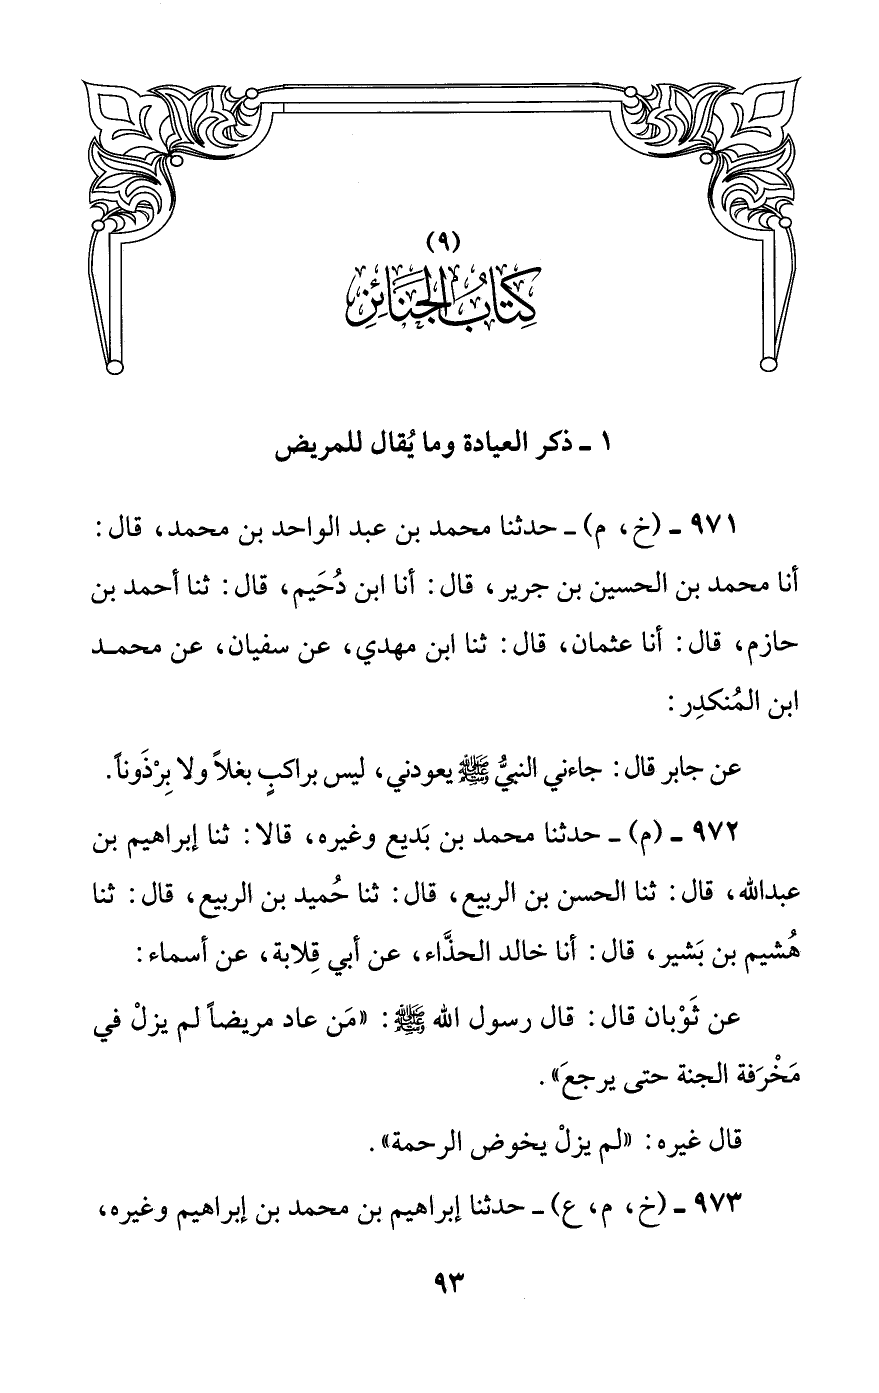 (٩)
كِتَابُ الجَنَائِزِ
١ ـ ذكر العيادة وما يُقال للمريض
٩٧١ ـ (خ، م) ـ حدثنا محمد بن عبد الواحد بن محمد، قال:
أنا محمد بن الحسين بن جرير، قال: أنا ابن دُحَيم، قال: ثنا أحمد بن
حازم، قال: أنا عثمان، قال: ثنا ابن مهدي، عن سفيان، عن محمـد
ابن المُنكدِر:
عن جابر قال: جاءني النبيُّ ﷺ يعودني، ليس براكبٍ بغلاً ولا بِرْذَوناً.
٩٧٢ ـ (م) ـ حدثنا محمد بن بَديع وغيره، قالا: ثنا إبراهيم بن
عبدالله، قال: ثنا الحسن بن الربيع، قال: ثنا حُميد بن الربيع، قال: ثنا
هُشيم بن بَشير، قال: أنا خالد الحذَّاء، عن أبي قِلابة، عن أسماء:
عن ثَوْبان قال: قال رسول الله ﷺ: «مَن عاد مريضاً لم يزلْ في
مَخْرَفة الجنة حتى يرجعَ».
قال غيره: «لم يزلْ يخوض الرحمة».
٩٧٣ ـ (خ، م، ع) ـ حدثنا إبراهيم بن محمد بن إبراهيم وغيره،
٩٣